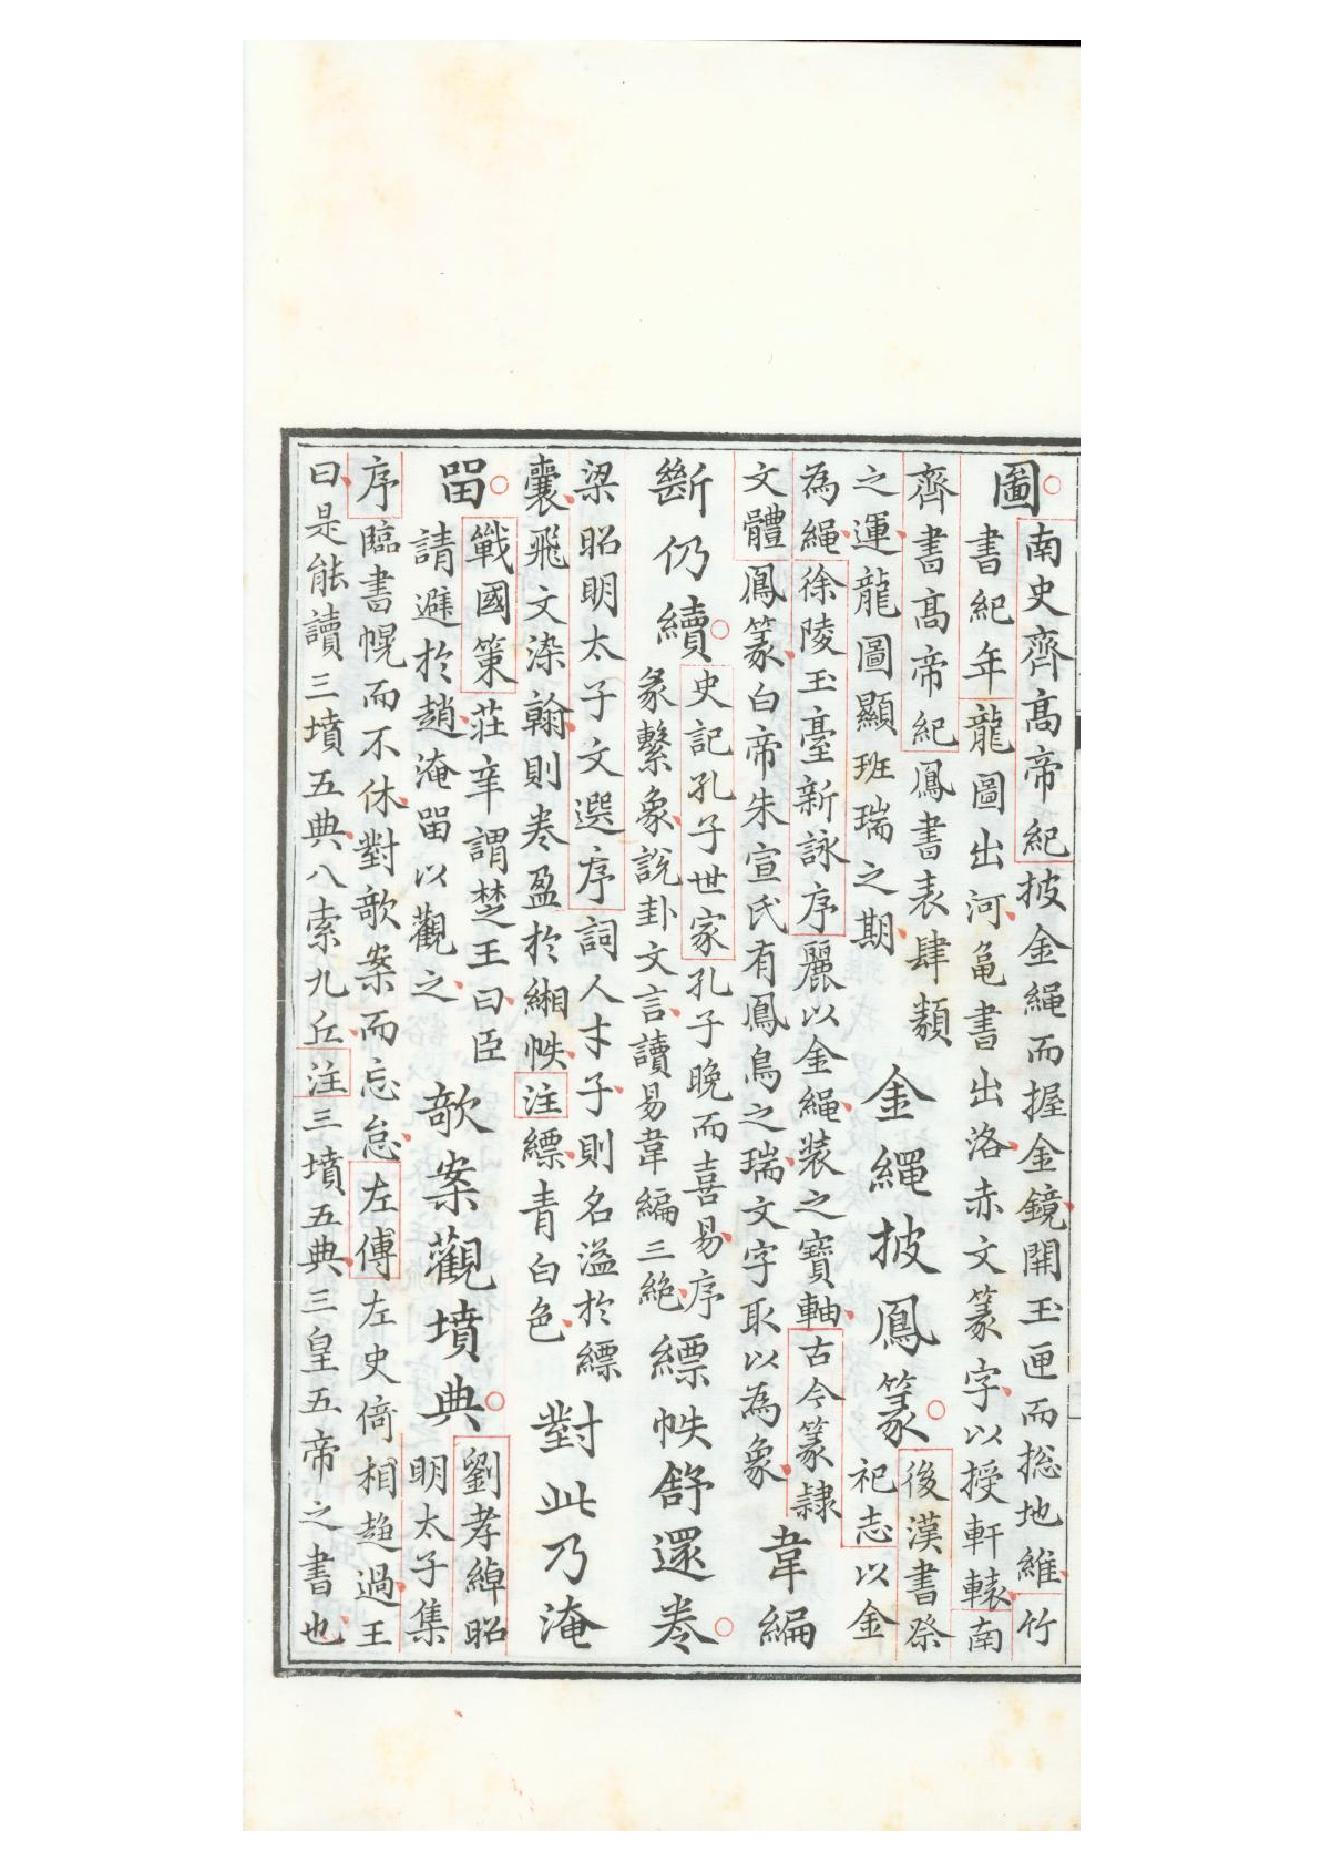 圖
南史齊高帝紀披金繩而握金鏡開玉匣而揔地維竹
書紀年龍圖出河龜書出洛赤文篆字以授軒轅南
齊書高帝紀鳳書表肆類
之運龍圖顯班瑞之期
金繩披鳳篆
後漢書祭
祀志以金
為繩徐陵玉臺新詠序麗以金繩裝之寶軸古今篆隸
文體鳳篆白帝朱宣氏有鳳鳥之瑞文字取以為象
韋編
斷仍續
史記孔子世家孔子晚而喜易序
彖繫象說卦文言讀易韋編三絕
縹帙舒還卷
梁昭明太子文選序詞人才子則名溢於縹
囊飛文染翰則卷盈於緗帙注縹青白色
對此乃淹
留
戰國策莊辛謂楚王曰臣
請避於趙淹留以觀之
欹案觀墳典
劉孝綽昭
明太子集
序臨書幌而不休對欹案而忘怠左傳左史倚相趨過王
曰是能讀三墳五典八索九丘注三墳五典三皇五帝之書也